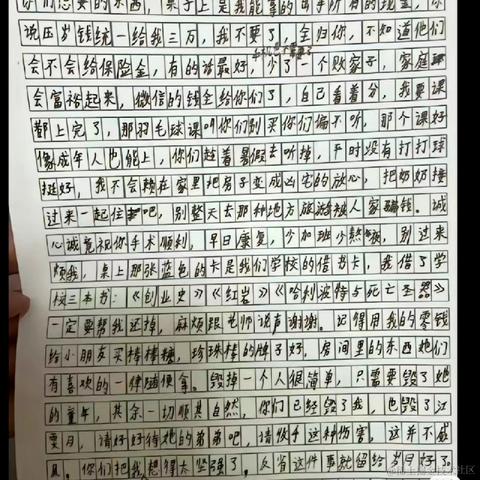 你们想要的东西，桌子上是我能拿的出手所有的现金，你
说压岁钱统一给我三万，我不要了，全归你，不知道他们
手机也不需要了
会不会给保险金，有的话最好，少了一个败家子，家庭
会富裕起来，微信的钱全给你们了，自己看着分，我要课
都上完了，那羽毛球课叫你们别买你们偏不听，那个课好
像成年人也能上，你们趁着暑假去听掉，平时没有打打球
挺好，我不会赖在家里把房子变成凶宅的放心，把奶奶接
过来一起住吧，别整天去那种地方旅游被人家骗钱。诚
心诚意祝你手术顺利，早日康复，少加班少熬夜，别过来
烦我，桌上那张蓝色的卡是我们学校的借书卡，我借了学
校三本书：《创业史》《红岩》《哈利波特与死亡圣器》
一定要帮我还掉，麻烦跟老师说声谢谢。记得用我的零钱
给小朋友买棒棒糖，珍珠棒的牌子好，房间里的东西她们
有喜欢的一律随便拿。毁掉一个人很简单，只需要毁了她
的童年，其余一切顺其自然，你们已经毁了我，也毁了江
月，请好好待她的弟弟吧，请收手这种伤害，这并不感
。你们把我想得太坚强了。反省这件事就留给岁月好了。